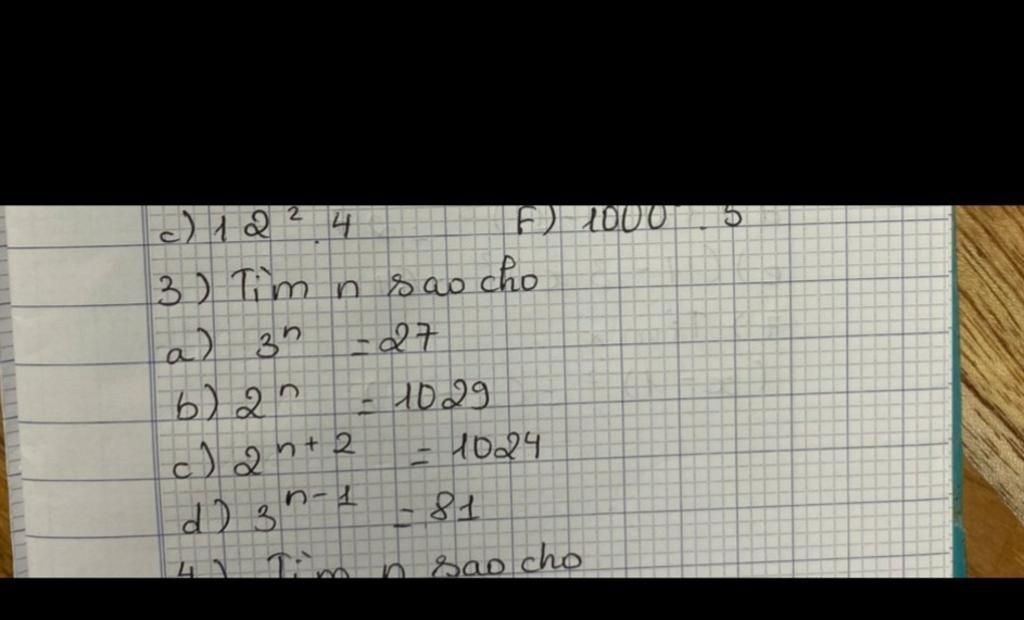 c) 12² . 4 F) 1000 . 5
3) Tìm n sao cho
a) 3ⁿ = 27
b) 2ⁿ = 1029
c) 2ⁿ⁺² = 1024
d) 3ⁿ⁻¹ = 81
4) Tìm n sao cho